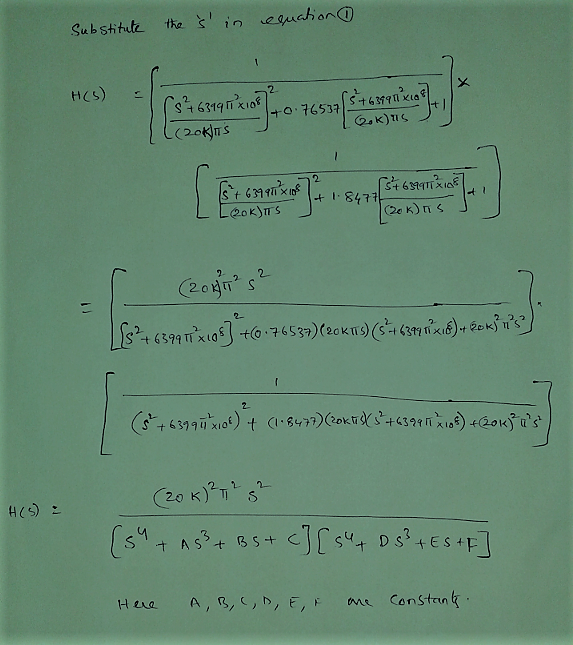 Substitute the 's' in equation ①
H(s) = [ 1 / ( [ (s² + 6399π²×10⁸) / ((20K)πs) ]² + 0.76537 [ (s² + 6399π²×10⁸) / ((20K)πs) ] + 1 ) ] ×
[ 1 / ( [ (s² + 6399π²×10⁸) / ((20K)πs) ]² + 1.8477 [ (s² + 6399π²×10⁸) / ((20K)πs) ] + 1 ) ]
= [ (20K)²π² s² / ( [s² + 6399π²×10⁸]² + (0.76537)(20Kπs)(s² + 6399π²×10⁸) + (20K)²π²s² ) ].
[ 1 / ( (s² + 6399π²×10⁸)² + (1.8477)(20Kπs)(s² + 6399π²×10⁸) + (20K)²π²s² ) ]
H(s) = (20K)²π² s² / ( [s⁴ + As³ + Bs + C] [s⁴ + Ds³ + Es + F] )
Here A, B, C, D, E, F are constants.